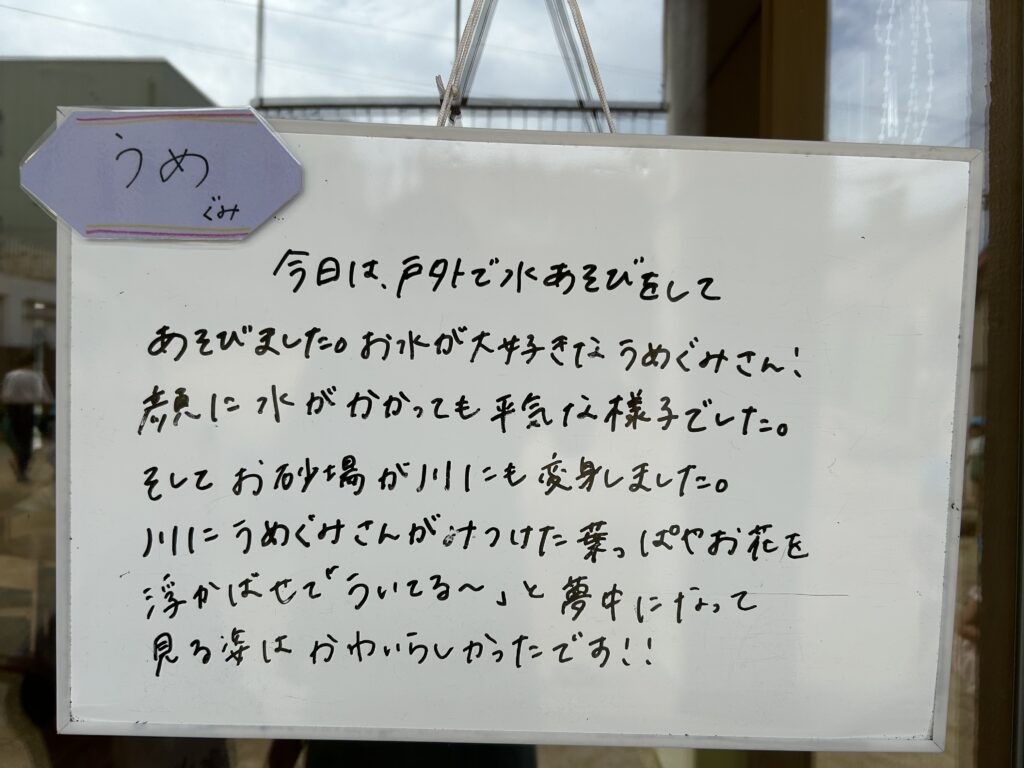 うめ
ぐみ
今日は、戸外で水あそびをして
あそびました。お水が大好きなうめぐみさん!
顔に水がかかっても平気な様子でした。
そしてお砂場が川にも変身しました。
川にうめぐみさんがみつけた葉っぱやお花を
浮かばせて「ういてる〜」と夢中になって
見る姿はかわいらしかったです!!